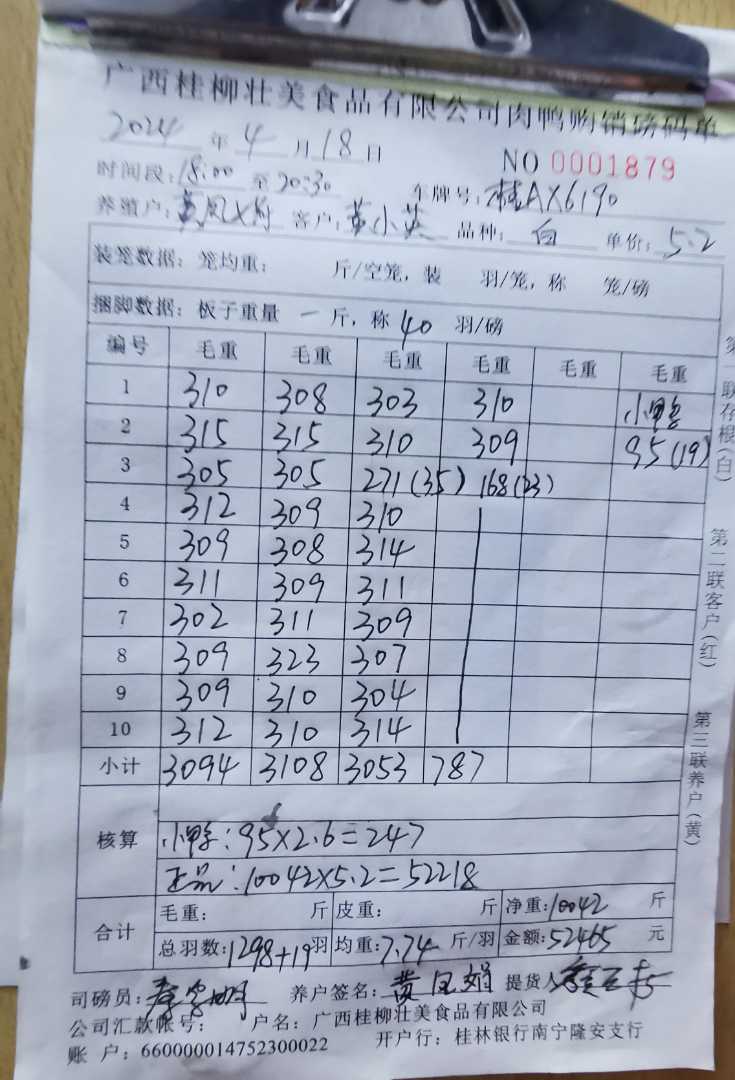 广西桂柳壮美食品有限公司肉鸭购销磅码单
2024年4月18日 NO 0001879
时间段:18:00至20:30 车牌号:桂AX6190
养殖户:黄凤娟 客户:黄小英 品种:白 单价:5.2
装笼数据:笼均重: 斤/空笼,装 羽/笼,称 笼/磅
捆脚数据:板子重量 一 斤,称 40 羽/磅
编号 毛重 毛重 毛重 毛重 毛重 毛重
1 310 308 303 310 小鸭
2 315 315 310 309 95(19)
3 305 305 271(35) 168(23)
4 312 309 310
5 309 308 314
6 311 309 311
7 302 311 309
8 309 323 307
9 309 310 304
10 312 310 314
小计 3094 3108 3053 787
核算
小鸭:95×2.6=247
正品:10042×5.2=52218
合计 毛重: 斤 皮重: 斤 净重:10042 斤
总羽数:1298+19羽 均重:7.74 斤/羽 金额:52465 元
司磅员: 养户签名:黄凤娟 提货人
公司汇款帐号: 户名:广西桂柳壮美食品有限公司
账 户:660000014752300022 开户行:桂林银行南宁隆安支行
第一联存根(白)
第二联客户(红)
第三联养户(黄)